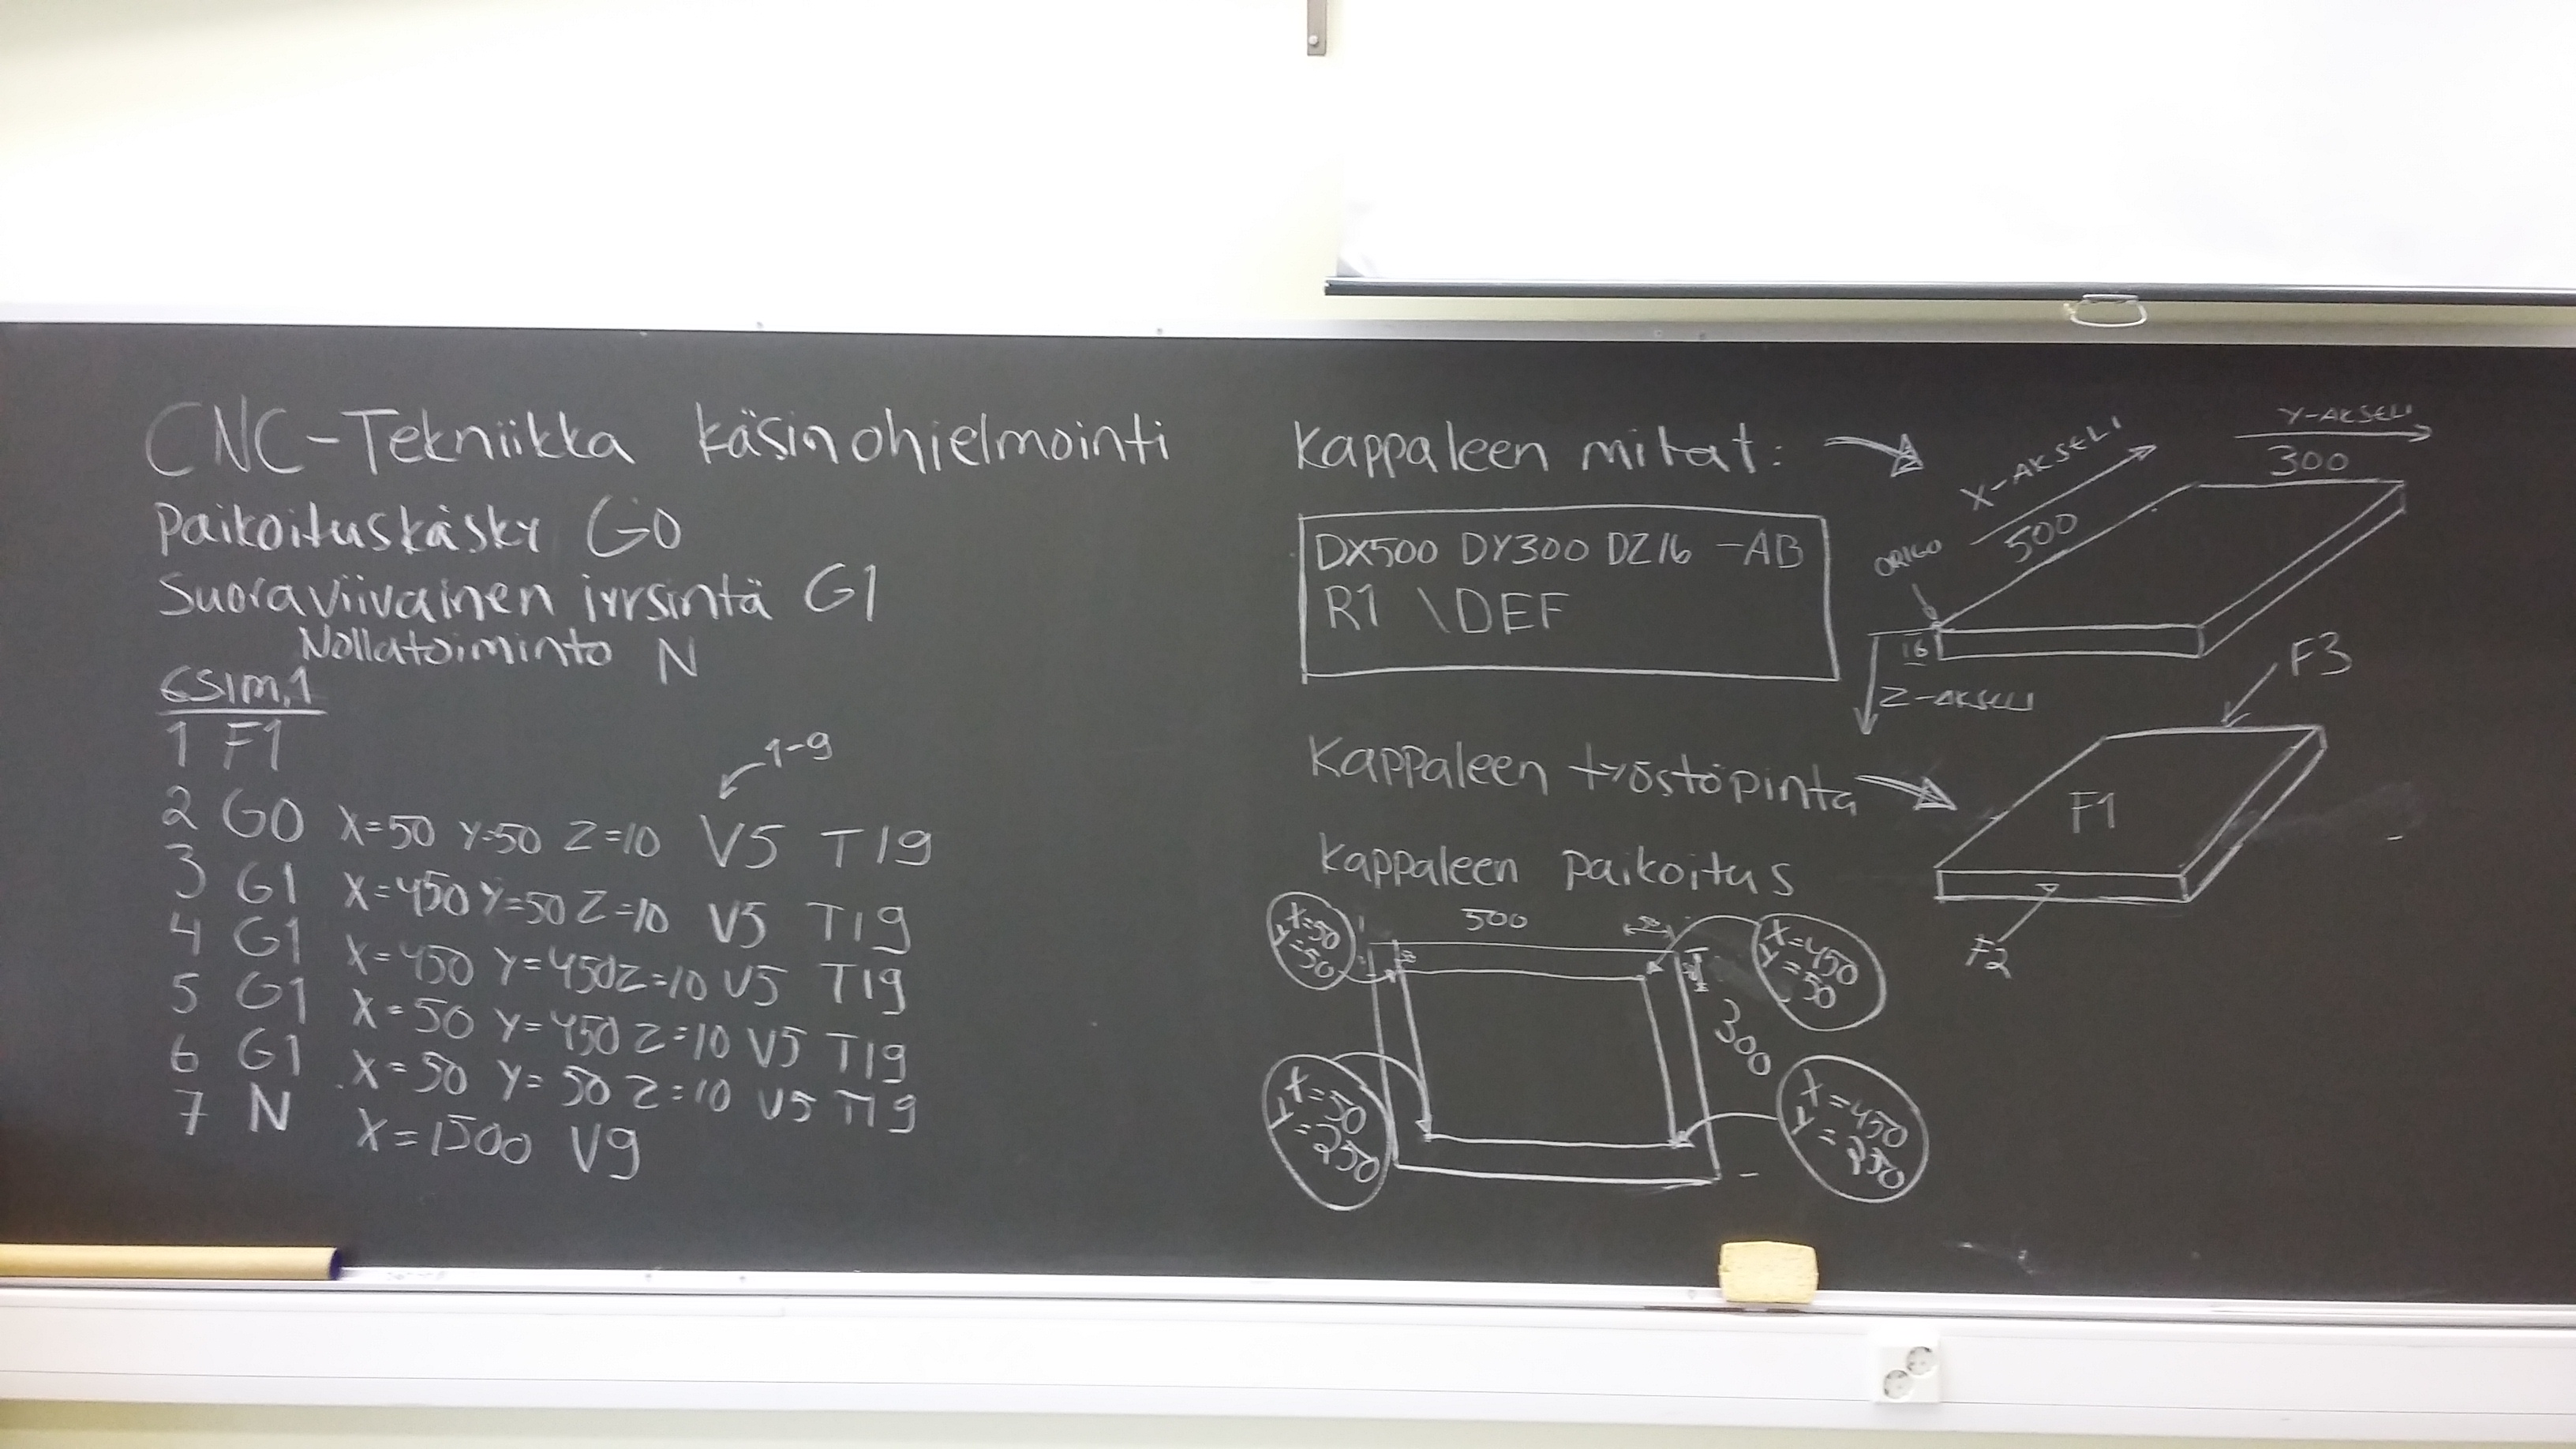 CNC-Tekniikka käsinohjelmointi
Paikoituskäsky G0
Suoraviivainen jyrsintä G1
Nollatoiminto N
Esim.1
1-9
1 F1
2 G0 X=50 Y=50 Z=10 V5 T19
3 G1 X=450 Y=50 Z=10 V5 T19
4 G1 X=450 Y=450 Z=10 V5 T19
5 G1 X=50 Y=450 Z=10 V5 T19
6 G1 X=50 Y=50 Z=10 V5 T19
7 N X=1500 V9
Kappaleen mitat:
DX500 DY300 DZ16 -AB
R1 \DEF
X-AKSELI
500
Y-AKSELI
300
ORIGO
16
Z-AKSELI
Kappaleen työstöpinta
F3
F1
F2
Kappaleen paikoitus
500
X=50
Y=50
X=450
Y=50
300
X=50
Y=250
X=450
Y=250